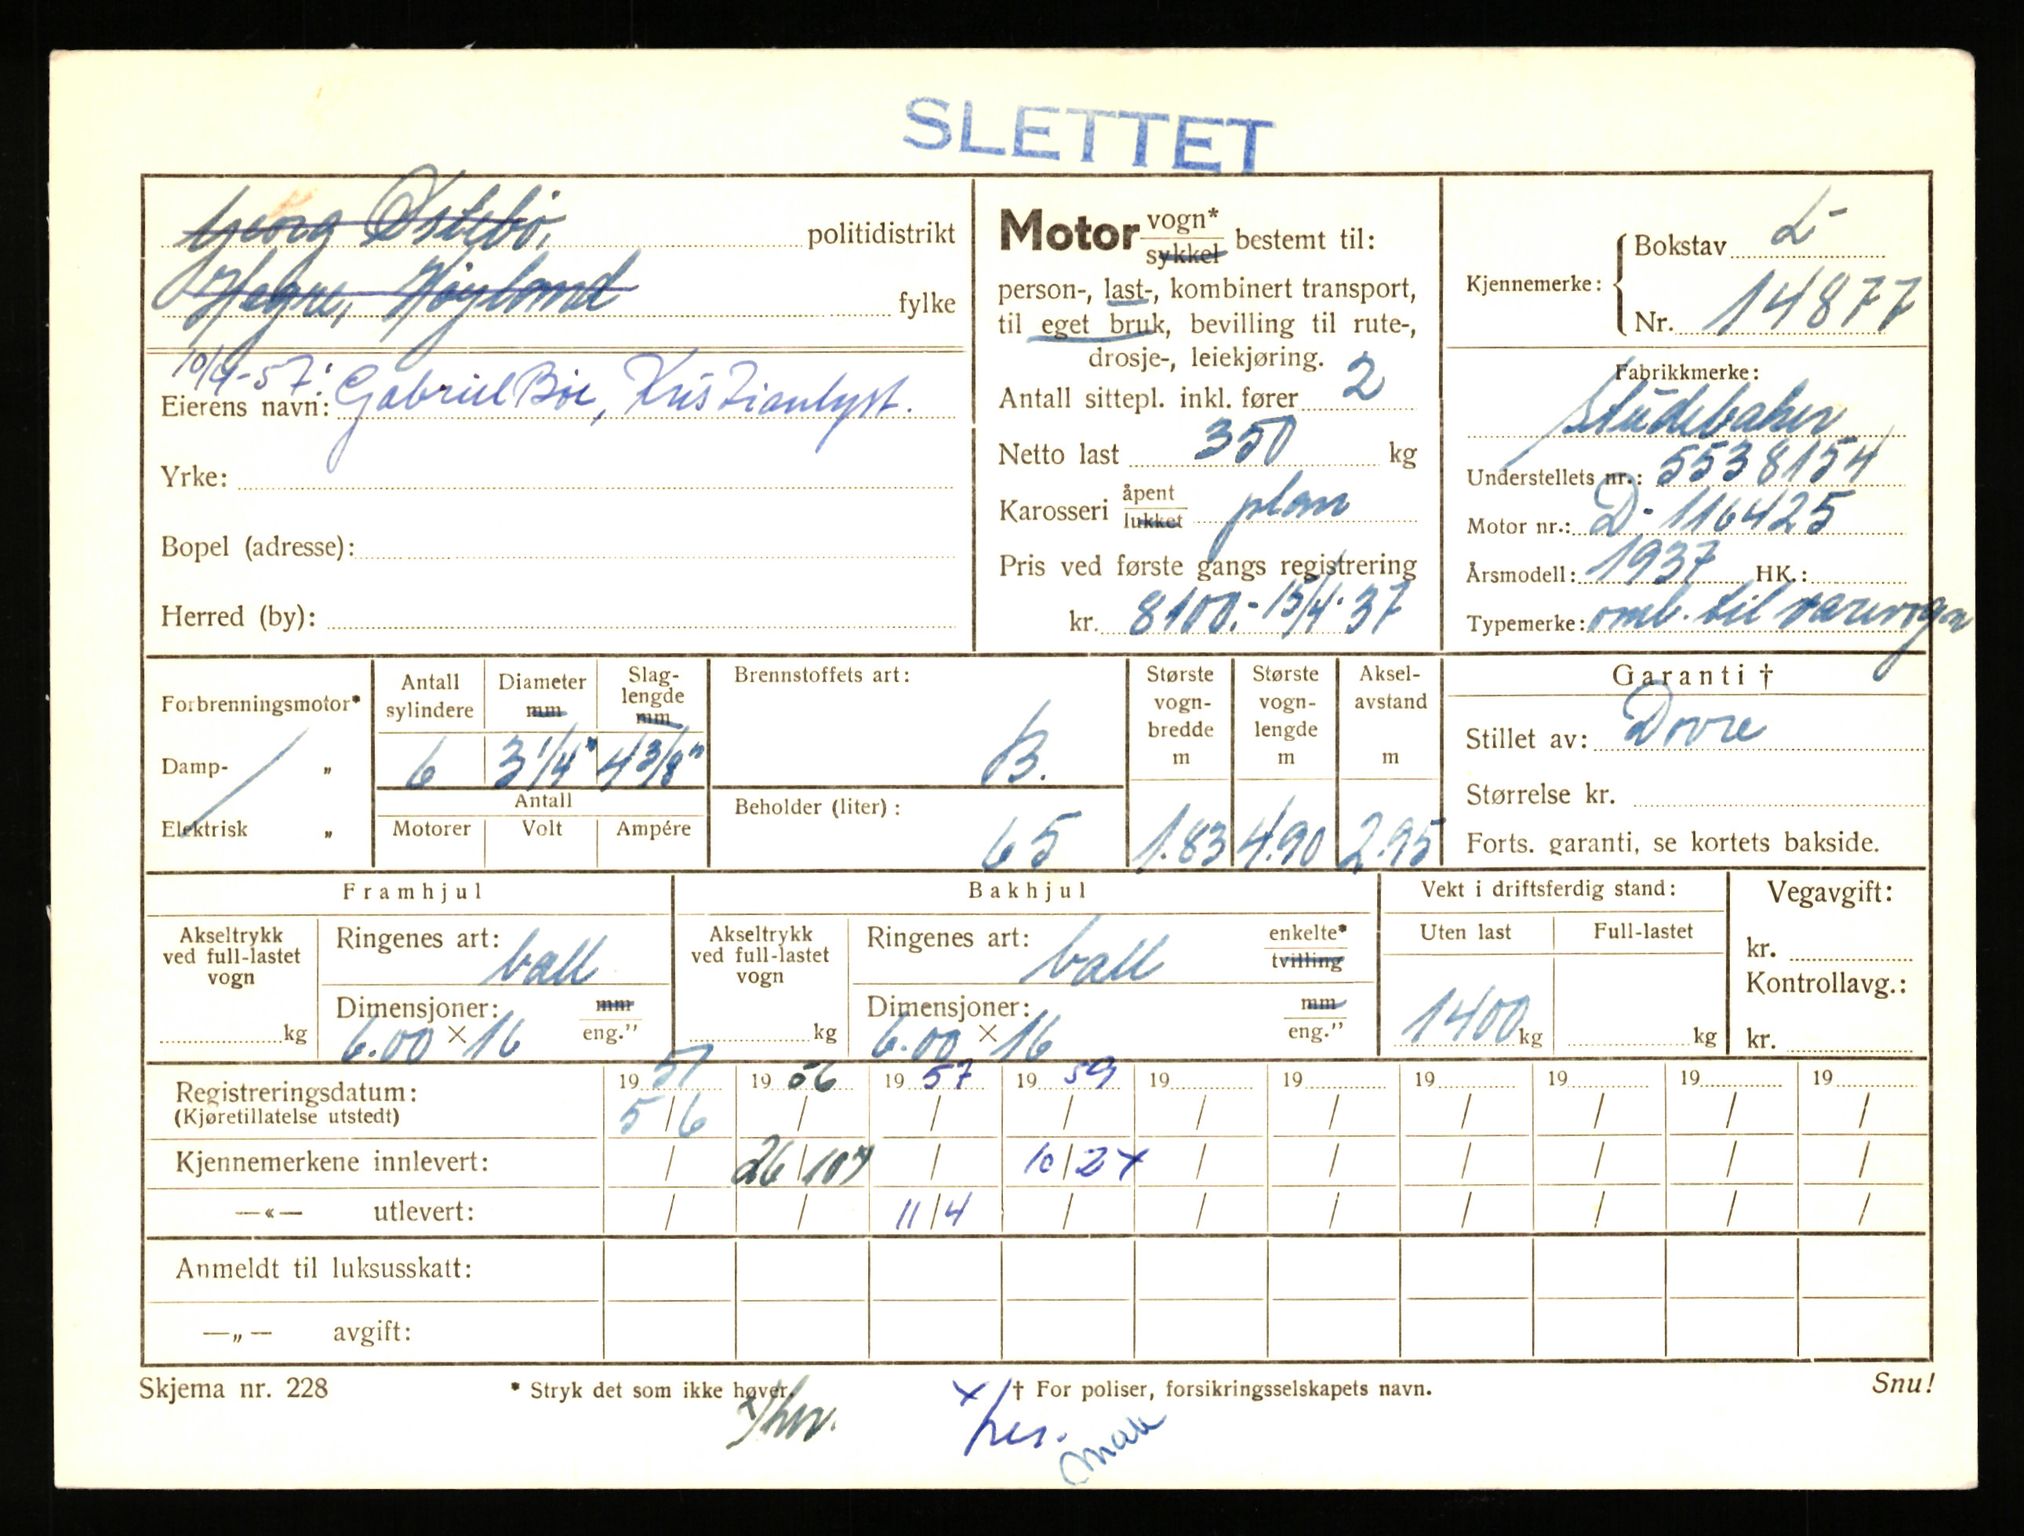 SLETTET
Georg Østebø, politidistrikt
Høyland fylke
10/4-57: Eierens navn: Gabriel Bøe, Kristianlyst.
Yrke:
Bopel (adresse):
Herred (by):
Motor vogn* sykkel bestemt til:
person-, last-, kombinert transport,
til eget bruk, bevilling til rute-,
drosje-, leiekjøring.
Antall sittepl. inkl. fører 2
Netto last 350 kg
Karosseri åpent lukket plan
Pris ved første gangs registrering
kr. 8100.- 15/4-37
Kjennemerke: Bokstav L-
Nr. 14877
Fabrikkmerke:
Studebaker
Understellets nr.: 5538154
Motor nr.: D-116425
Årsmodell: 1937 HK.:
Typemerke: omb. til varevogn
Forbrenningsmotor*
Damp- „
Elektrisk „
Antall sylindere Diameter mm Slaglengde mm
6 3 1/4" 4 3/8"
Antall
Motorer Volt Ampére
Brennstoffets art:
B.
Beholder (liter):
65
Største vognbredde m 1.83
Største vognlengde m 4.90
Akselavstand m 2.95
Garanti †
Stillet av: Dovre
Størrelse kr.
Forts. garanti, se kortets bakside.
Framhjul
Akseltrykk ved full-lastet vogn
kg
Ringenes art: ball
Dimensjoner: mm
6.00 × 16 eng.”
Bakhjul
Akseltrykk ved full-lastet vogn
kg
Ringenes art: ball enkelte* tvilling
Dimensjoner: mm
6.00 × 16 eng.”
Vekt i driftsferdig stand:
Uten last Full-lastet
1400 kg kg
Vegavgift:
kr.
Kontrollavg.:
kr.
Registreringsdatum: 19 51 19 56 19 57 19 59 19 19 19 19 19 19
(Kjøretillatelse utstedt) 5/6 / / / / / / / / /
Kjennemerkene innlevert: / 26/10 x) / 10/2 x / / / / / /
—«— utlevert: / / 11/4 / / / / / / /
Anmeldt til luksusskatt:
—„— avgift:
Skjema nr. 228 * Stryk det som ikke høver. † For poliser, forsikringsselskapets navn. Snu!